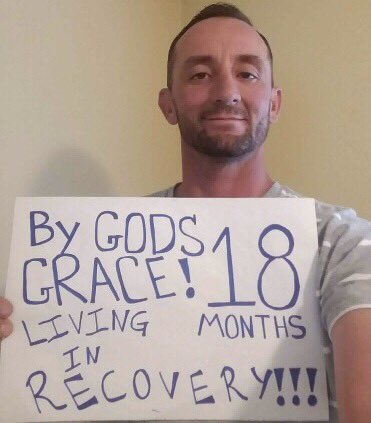 By GODS
GRACE! 18
LIVING MONTHS
IN
RECOVERY!!!